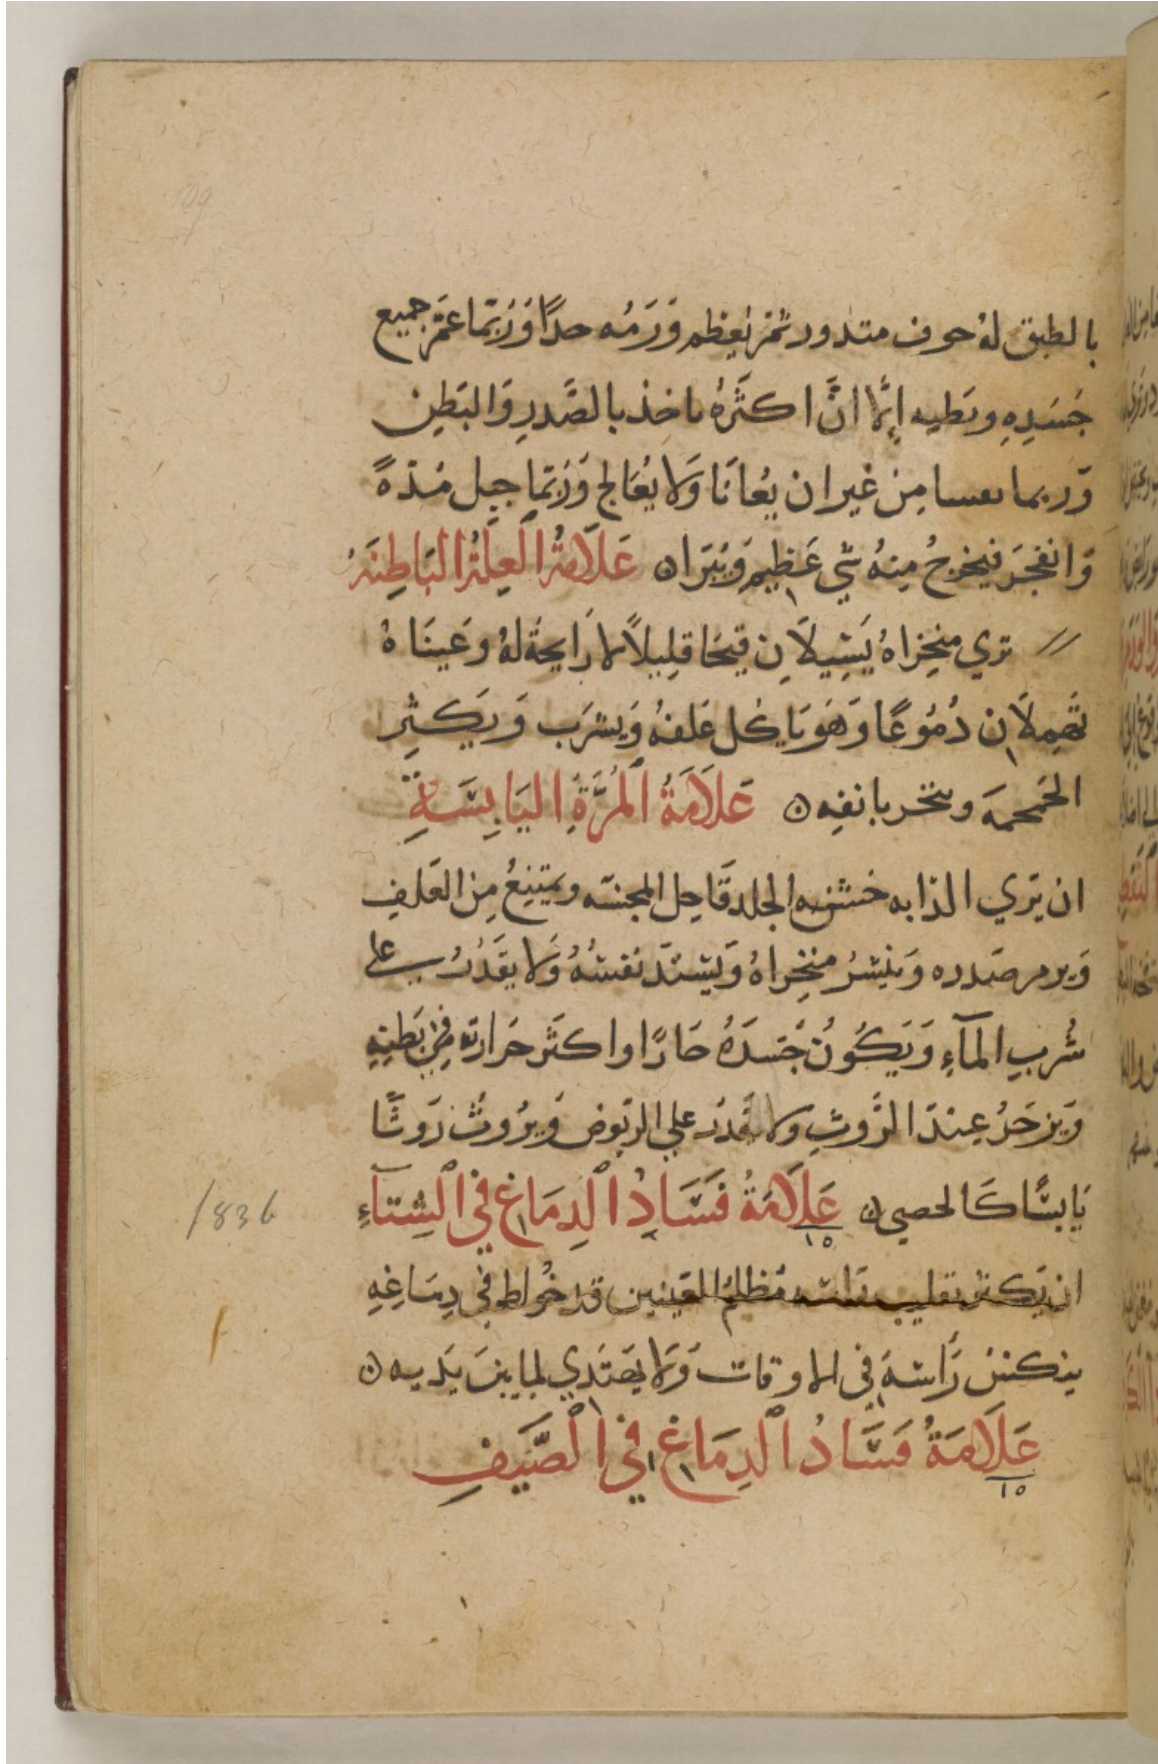 بالطبق له حرف متدور ثم يعظم ورمه جدًا وربما عم جميع
جَسَدِهِ وبطنه إلّا انَّ اكثَرهُ ياخذ بالصَّدرِ وَالبَطنِ
وربما مِن غير ان يُعانَا وَلا يُعَالج وَرُبَّما مُدّةً
وَانفجَر فيخرجُ مِنهُ شي عَظِيم وَيبرَا ه عَلَامَةُ العِلَّةُ البَاطِنَهُ
تري منخِراهُ يَسِيلَانِ قيحًا قلِيلًا لا رَايحةَ لهُ وعَينَاهُ
تهمِلَان دُمُوعًا وَهوَ يَاكل عَلفهُ وَيشرَب وَيكثِر
الحَمحمَه وينخر بانفِه ه عَلَامَةُ المُرَّةِ اليَابِسَةِ
ان يَري الدّابه خشنه الجلد قَاحِل المجسّه ويمتنِعُ مِن العَلفِ
وَيرم صَدره وَينشرُ منخِراهُ وَيشتدّ نفسُهُ وَلا يقدُر علي
شُربِ المآءِ وَيَكُونُ جَسَدهُ حَارًا واكثَر حَرارته في بَطنِهِ
وَيزحَرُ عِندَ الرَّوثِ ولا يقدر علي الربُوض وَيرُوثُ رَوثًا
يَابسًا كَالحصي ه عَلَامَةُ فَسَادُ الدِمَاغ في الشِتآءِ
١٥
1836
ان يَكثر تقليب رَاسه مُظلِمُ العَينين قد خُولط في دِمَاغِهِ
ينكسُ رَأسَهَ في الاوقات وَلا يَهتَدي لما بينَ يَديه ه
عَلَامَةُ فسَادُ الدِمَاغ في الصَّيفِ
١٥